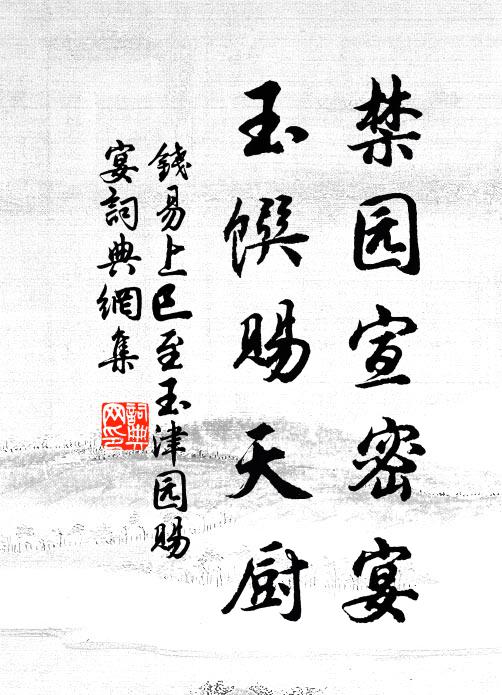 禁园宣密宴
玉馔赐天厨
錢易上巳至玉津园赐
宴詞典網集
詞典网印